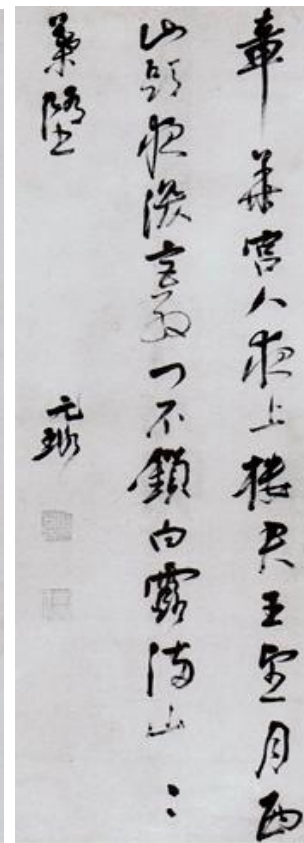 章華宮人夜上樓君王望月西
山頭夜深宮殿門不鎖白露滿山〻
葉墮
元璐